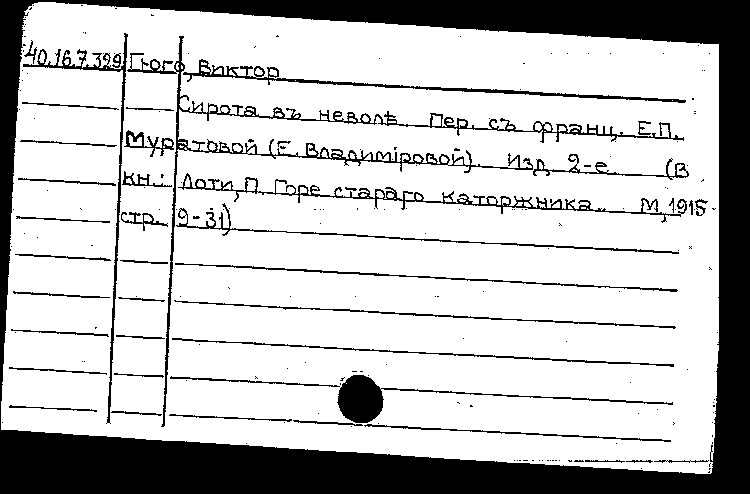 40.16.7.329 Гюго, Виктор
Сирота въ неволѣ. Пер. съ франц. Е.П.
Муратовой (Е. Владиміровой). Изд. 2-е. (В
кн.: Лоти, П. Горе стараго каторжника. М, 1915
стр. 9-31)